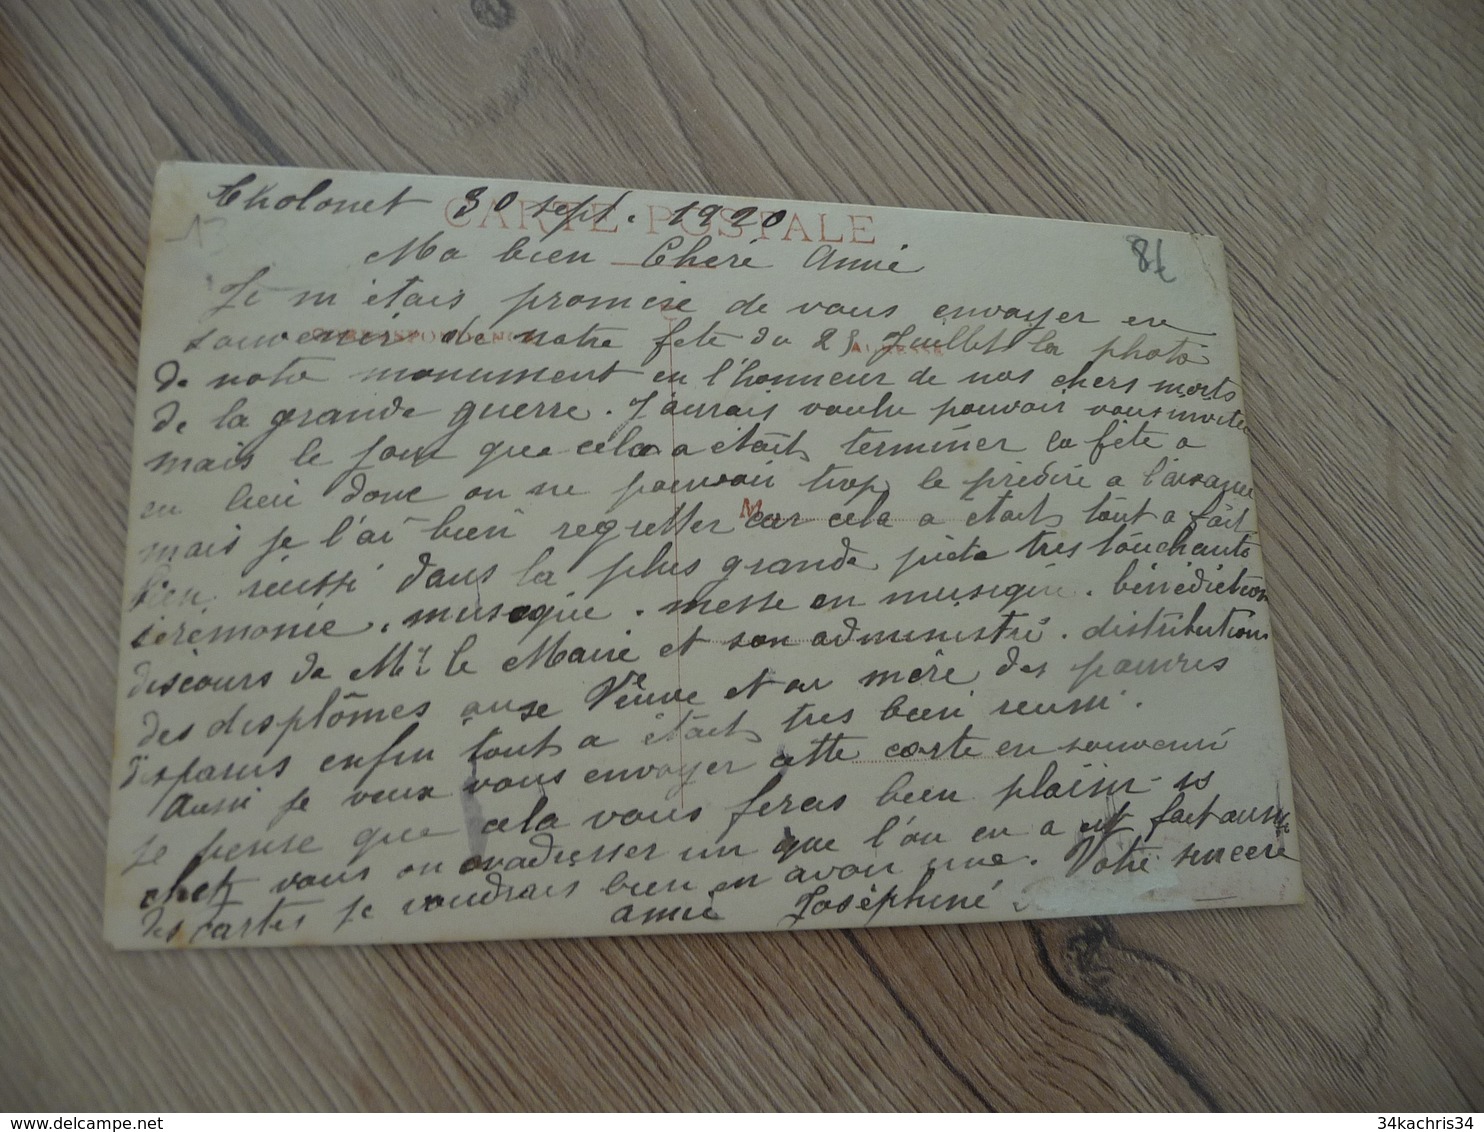 Tholonet 30 sept. 1920
CARTE POSTALE
8€
Ma bien Chère Amie
Je m'étais promise de vous envoyer en
souvenir de notre fete du 25 Juillet la photo
CORRESPONDANCE
ADRESSE
de notre monument en l'honneur de nos chers morts
de la grande guerre. J'aurais voulu pouvoir vous inviter
mais le jour que cela a étais terminer la fête a
en lieu donc on ne pouvair trop le prédire a l'avance
M
mais je l'ai bien regretter car cela a étais tout a fait
bien réussi dans la plus grande piéte tres touchante
cérémonie. musique. messe en musique. bénédiction
discours de Mr le Maire et son administré. distribution
des displômes au se Veuve et au mère des pauvres
disparus enfin tout a étais tres bien reussi.
Aussi je veux vous envoyer cette carte en souvenir
je pense que cela vous feras bien plaisir - is
chez vous on en adresser un que l'on en a et fait aussi
des cartes je voudrais bien en avoir une. Votre sincere
amie Joséphine
34kachris34